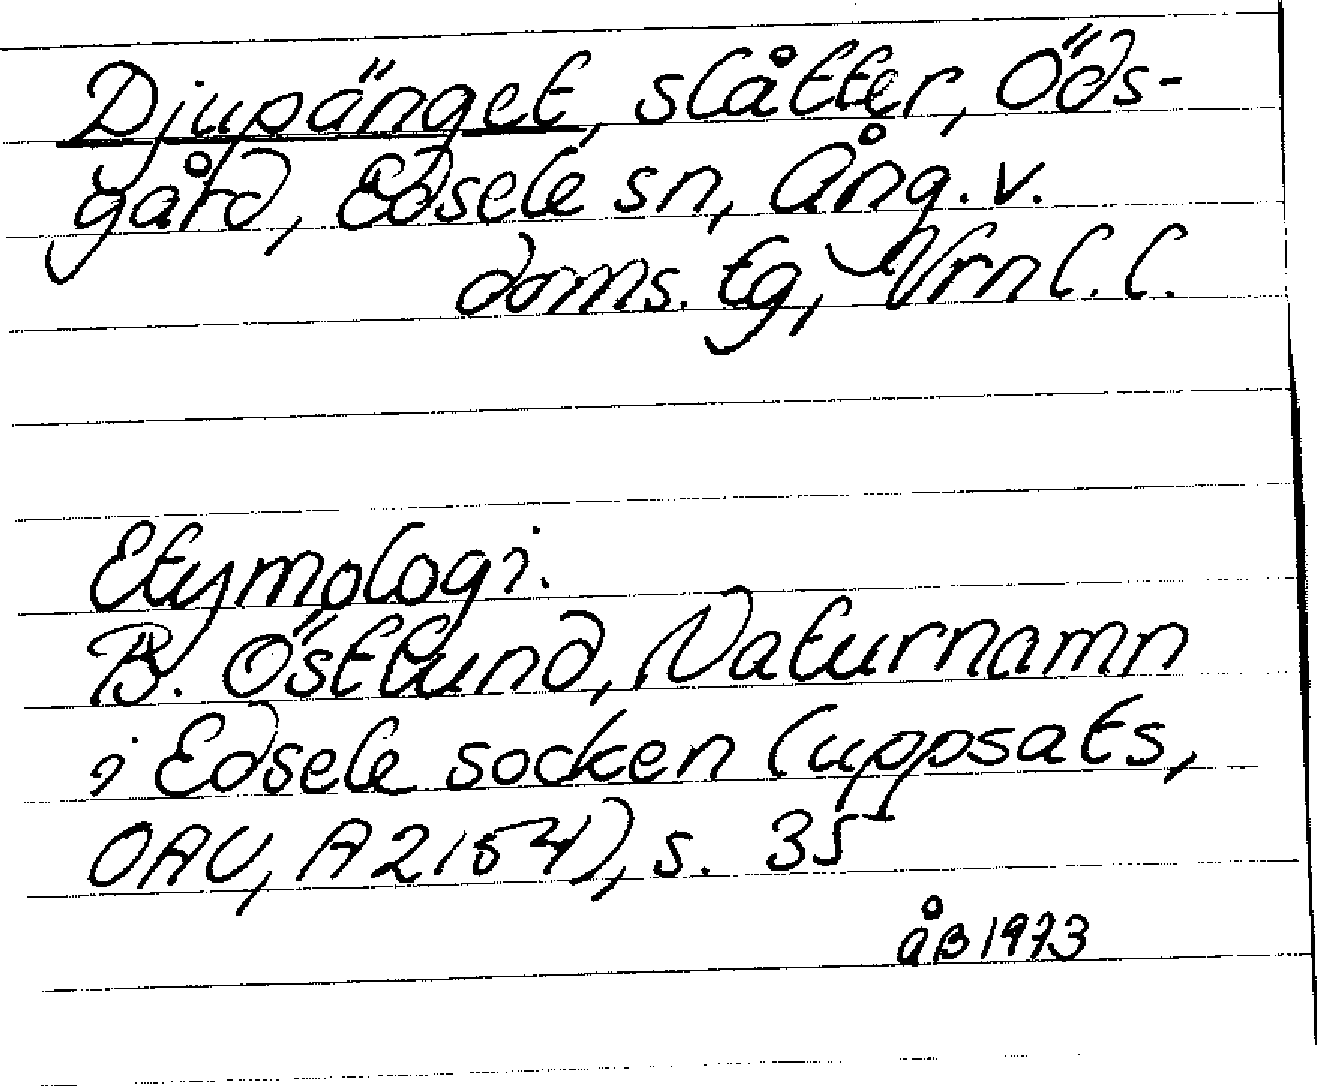 Djupänget, slåtter, Öds-
gård, Edsele sn, Ång. v.
doms. tg, Vrnl. l.
Etymologi.
B. Östlund, Naturnamn
i Edsele socken (uppsats,
OAU, A2154), s. 35
åB 1973